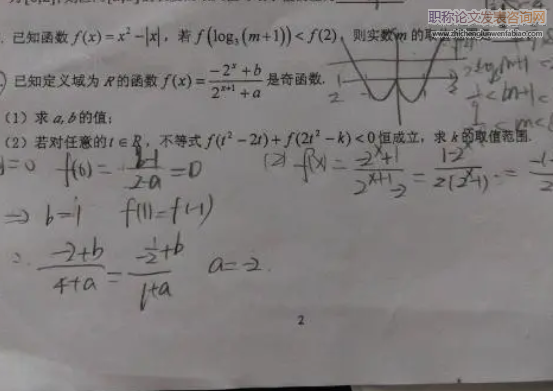 职称论文发表咨询网
www.zhichenglunwenfabiao.com
已知函数 f(x)=x²-|x|，若 f(log₃(m+1))<f(2)，则实数m的取值
已知定义域为 R 的函数 f(x)=\frac{-2^x+b}{2^{x+1}+a} 是奇函数.
（1）求 a,b 的值；
（2）若对任意的 t∈R，不等式 f(t²-2t)+f(2t²-k)<0 恒成立，求 k 的取值范围.
=0 f(0)=\frac{b-1}{2-a}=0 (2) f(x)=\frac{-2^x+1}{2^{x+1}-2}=\frac{1-2^x}{2(2^x-1)}=
⇒ b=1 f(1)=f(-1)
∴ \frac{-2+b}{4+a}=\frac{-\frac{1}{2}+b}{1+a} a=-2.
2